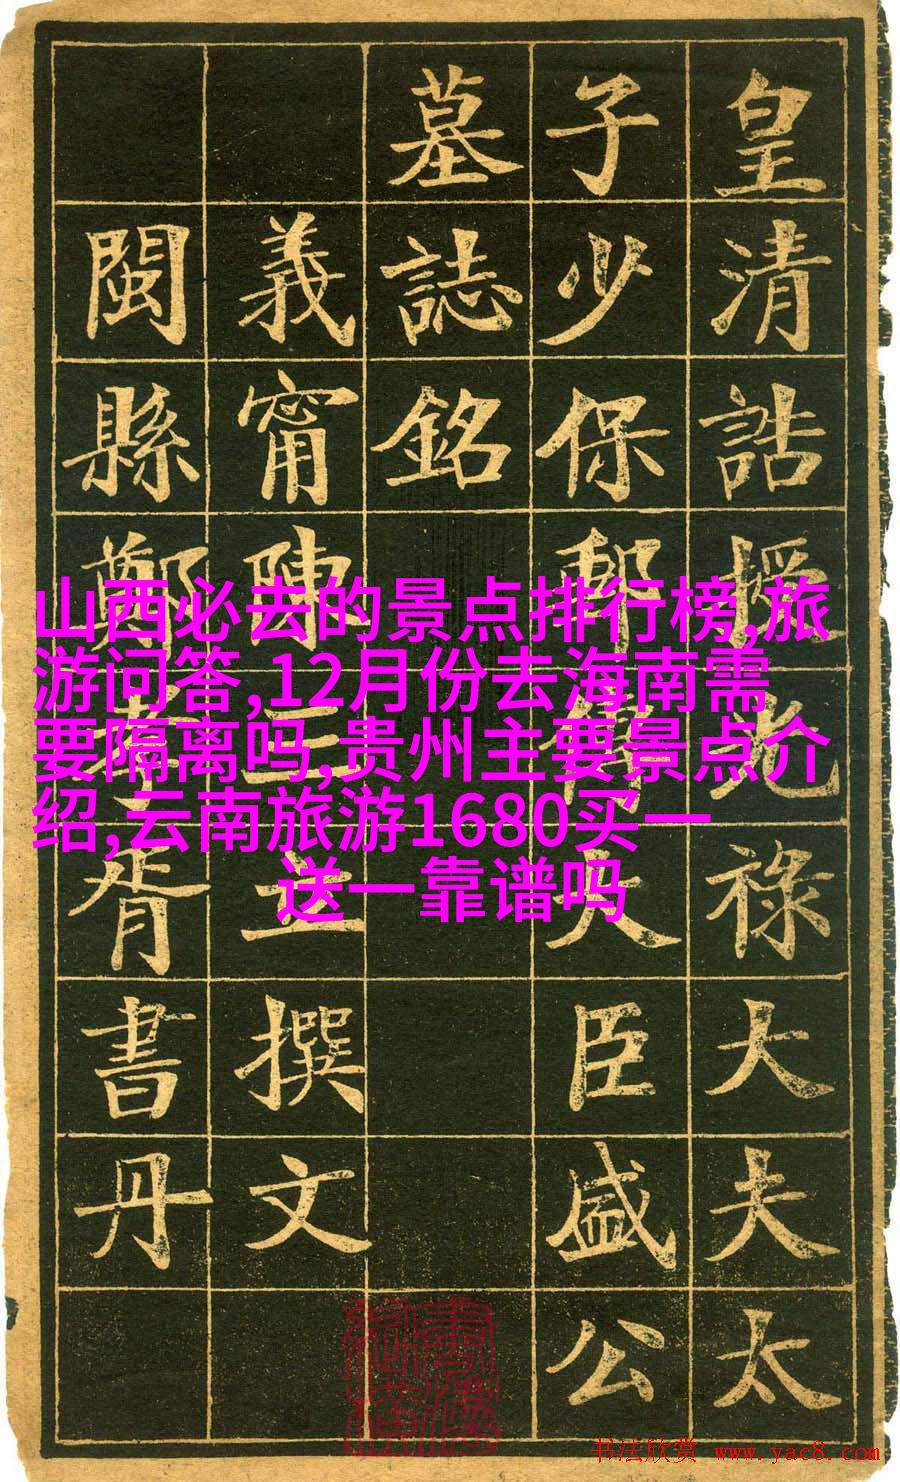 皇清誥授光祿大夫太
子少保郵傳大臣盛公
墓誌銘
義甯陳三立撰文
閩縣鄭孝胥書丹
山西必去的景点排行榜,旅
游问答,12月份去海南需
要隔离吗,贵州主要景点介
绍,云南旅游1680买一
送一靠谱吗
书法欣赏 www.yac8.com